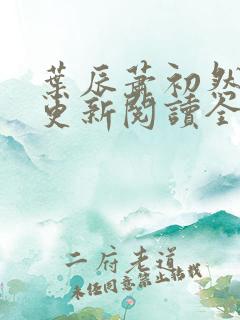 葉辰蕭初然
更新閱讀全
二府老道
未經同意禁止轉載